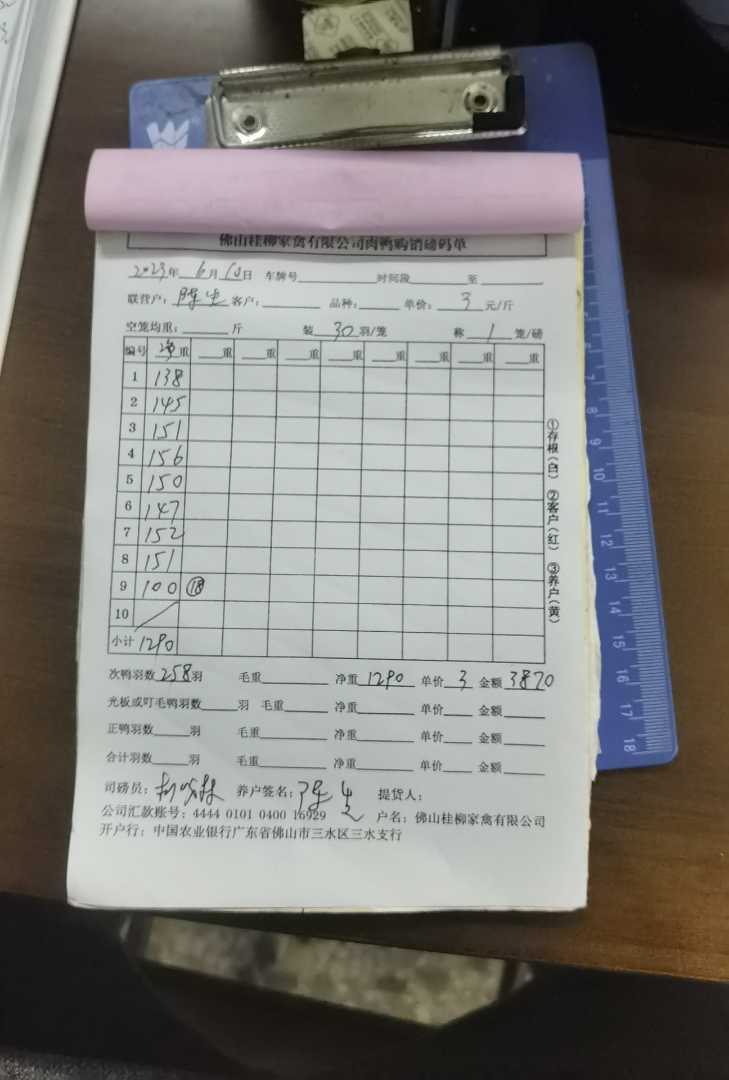 佛山桂柳家禽有限公司肉鸭购销磅码单
2023年 6月10日 车牌号 时间段 至
联营户：陈生 客户： 品种： 单价： 3 元/斤
空笼均重： 斤 装 30 羽/笼 称 1 笼/磅
编号 净重 重 重 重 重 重 重 重 重
1 138
2 145
3 151
4 156
5 150
6 147
7 152
8 151
9 100 ⑱
10
小计 1290
次鸭羽数 258羽 毛重 净重 1290 单价 3 金额 3870
光板或叮毛鸭羽数 羽 毛重 净重 单价 金额
正鸭羽数 羽 毛重 净重 单价 金额
合计羽数 羽 毛重 净重 单价 金额
司磅员： 养户签名：陈生 提货人：
公司汇款账号：4444 0101 0400 16929 户名：佛山桂柳家禽有限公司
开户行：中国农业银行广东省佛山市三水区三水支行
①存根（白） ②客户（红） ③养户（黄）
7
8
9
10
11
12
13
14
15
16
17
18